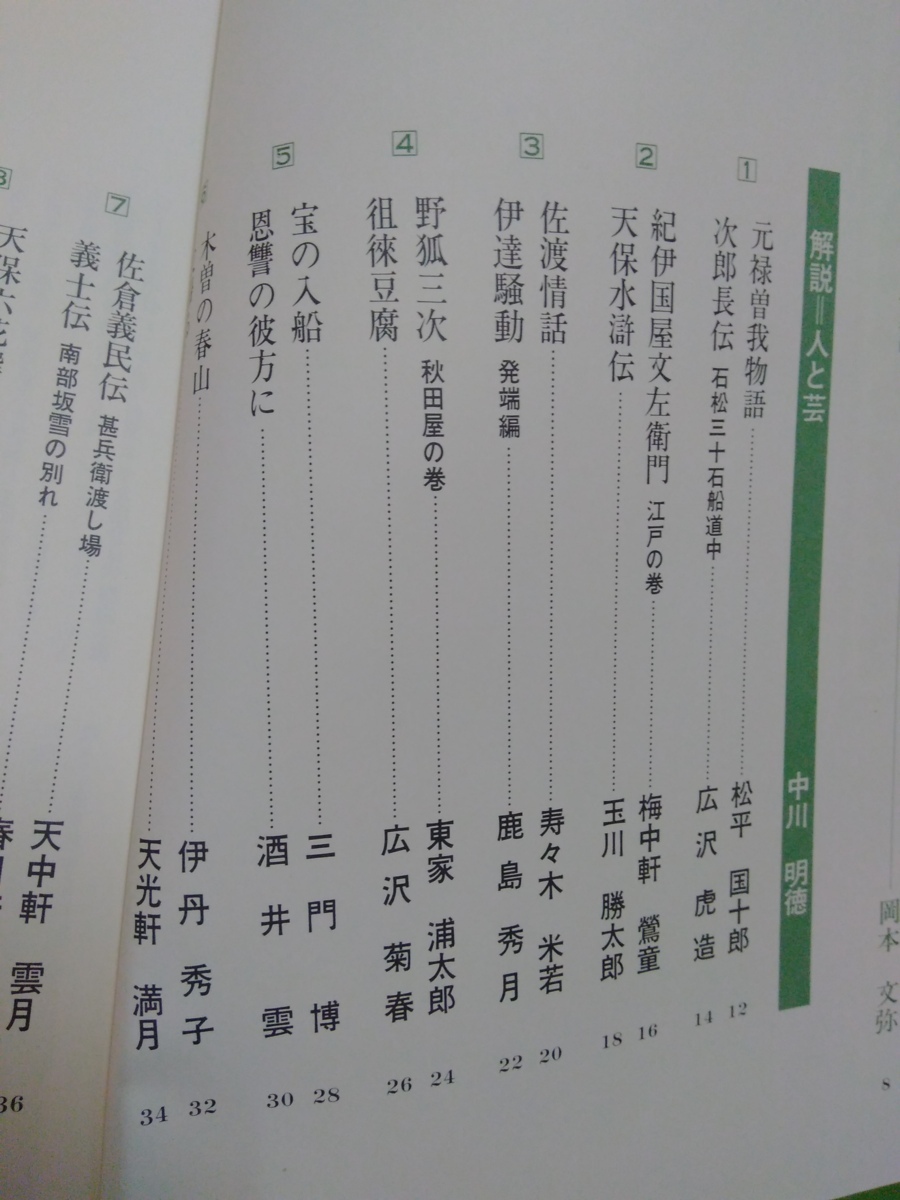 岡本 文弥 8
解説＝人と芸 中川 明徳
1
元禄曽我物語 松平 国十郎 12
次郎長伝 石松三十石船道中 広沢 虎造 14
2
紀伊国屋文左衛門 江戸の巻 梅中軒 鶯童 16
天保水滸伝 玉川 勝太郎 18
3
佐渡情話 寿々木 米若 20
伊達騒動 発端編 鹿島 秀月 22
4
野狐三次 秋田屋の巻 東家 浦太郎 24
徂徠豆腐 広沢 菊春 26
5
宝の入船 三門 博 28
恩讐の彼方に 酒井 雲 30
木曽の春山 伊丹 秀子 32
天光軒 満月 34
7
佐倉義民伝 甚兵衛渡し場
義士伝 南部坂雪の別れ 天中軒 雲月 36
天保六花